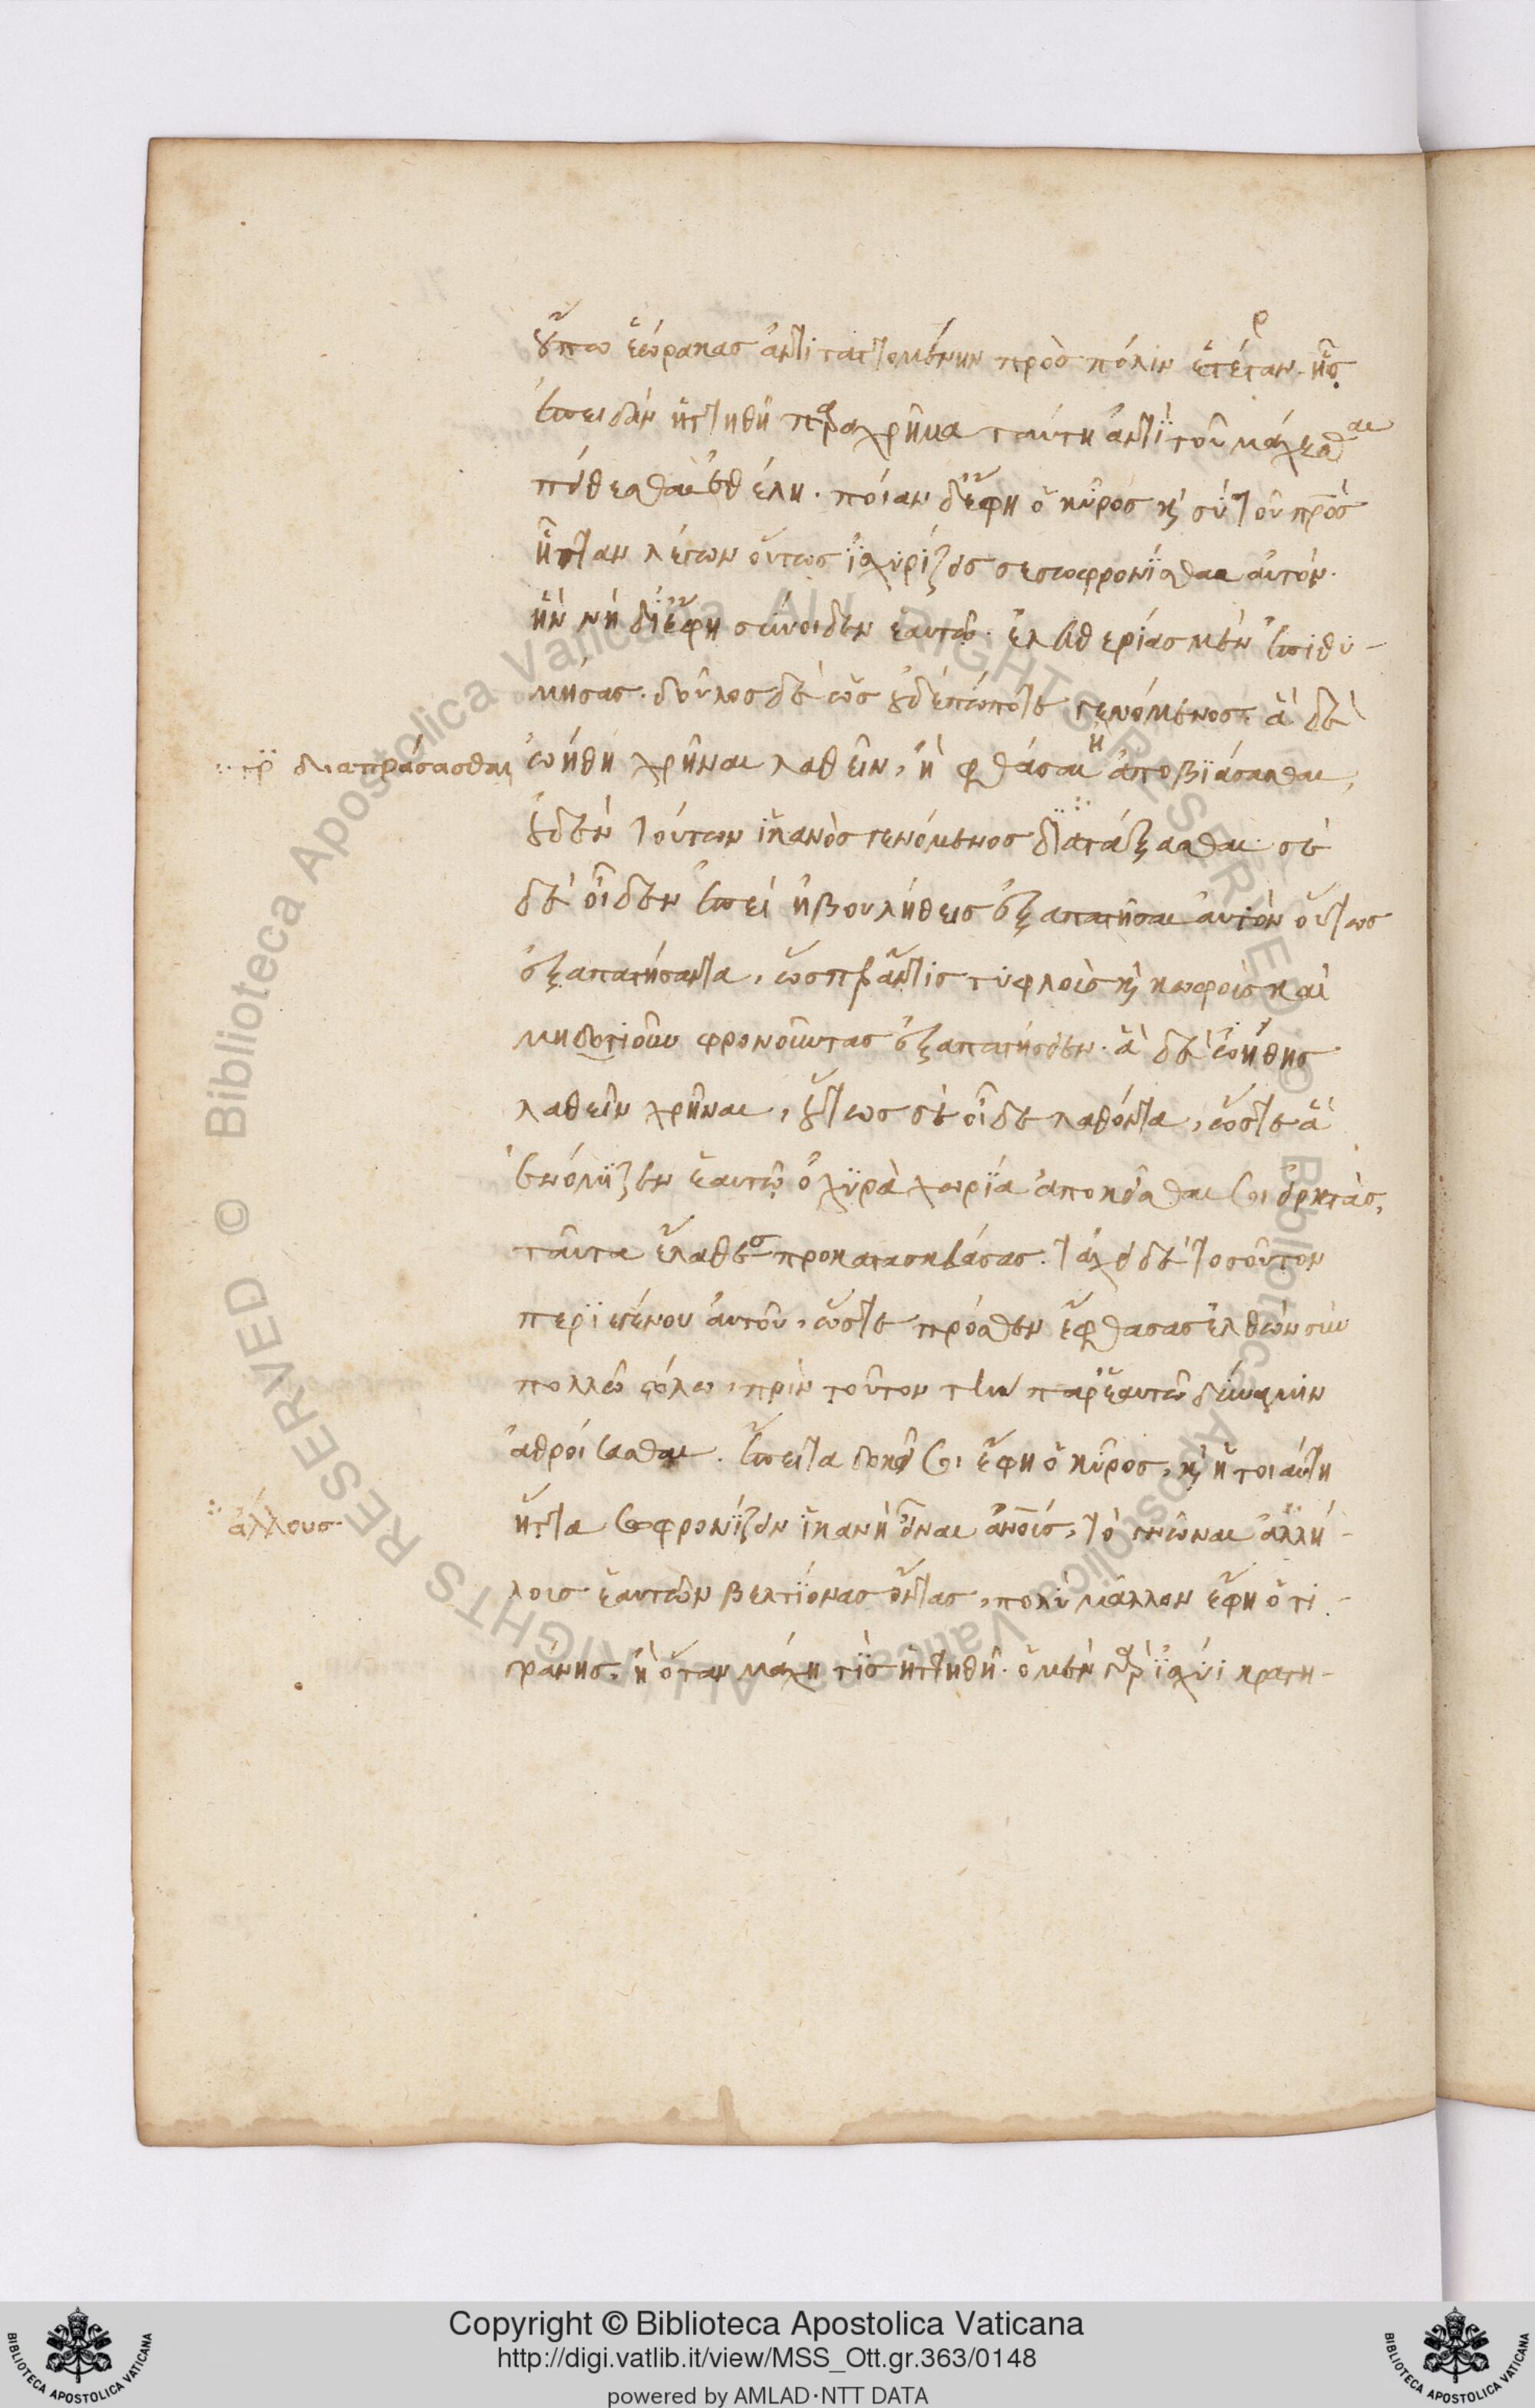 οὔπω ἑώρακας ἀντιταττομένην πρὸς πόλιν ἑτέραν. ἥτις
ἐπειδὰν ἡττηθῇ παραχρῆμα ταύτη ἀντὶ τοῦ μάχεσθαι
πείθεσθαι ἐθέλει. ποίαν δ' ἔφη ὁ κῦρος καὶ σὺ τοῦ πρὸς
ἧτταν λέγων οὕτως ἰσχυρίζεις σεσωφρονίσθαι αὐτόν.
ἣν νὴ δί' ἔφη σύνοιδεν ἑαυτῷ. ἐλευθερίας μὲν ἐπιθυ-
μήσας. δοῦλος δὲ ὡς οὐδεπώποτε γενόμενος. ἃ δὲ
γρ διαπράσασθαι
ὠήθη χρῆναι λαθεῖν, ἢ φθάσαι ἢ ἀποβιάσασθαι,
οὐδὲν τούτων ἱκανὸς γενόμενος διατάξασθαι. σὲ
δὲ οἶδεν ἐπεὶ ἠβουλήθεις ἐξαπατῆσαι αὐτὸν οὕτως
ἐξαπατήσαντα, ὥσπερ ἄν τις τυφλοὺς καὶ κωφοὺς καὶ
μηδοτιοῦν φρονοῦντας ἐξαπατήσειεν. ἃ δὲ ὠήθης
λαθεῖν χρῆναι, οὕτως σὲ οἶδε λαθόντα, ὥστε ἃ
ἐνόμιζεν ἑαυτῷ ὀχυρὰ χωρία ἀποκεῖσθαι σὺ εἱρκτὰς,
ταῦτα ἔλαθες προκατασκευάσας. τάχει δὲ τοσοῦτον
περιεγένου αὐτοῦ, ὥστε πρόσθεν ἔφθασας ἐλθὼν σὺν
πολλῷ στόλῳ, πρὶν τοῦτον τὴν παρ' ἑαυτῷ δύναμιν
ἀθροίσασθαι. ἔπειτα δοκεῖ σοι ἔφη ὁ κῦρος, καὶ ἡ τοιαύτη
ἄλλους
ἧττα σωφρονίζειν ἱκανὴ εἶναι ἀνους, τὸ γνῶναι ἀλλή-
λοις ἑαυτῶν βελτίονας ὄντας, πολὺ μᾶλλον ἔφη ὁ τι-
γράνης, ἢ ὅταν μάχῃ τὶς ἡττηθῇ. ὁ μὲν γὰρ ἰσχύι κρατη-
Copyright © Biblioteca Apostolica Vaticana
http://digi.vatlib.it/view/MSS_Ott.gr.363/0148
powered by AMLAD·NTT DATA